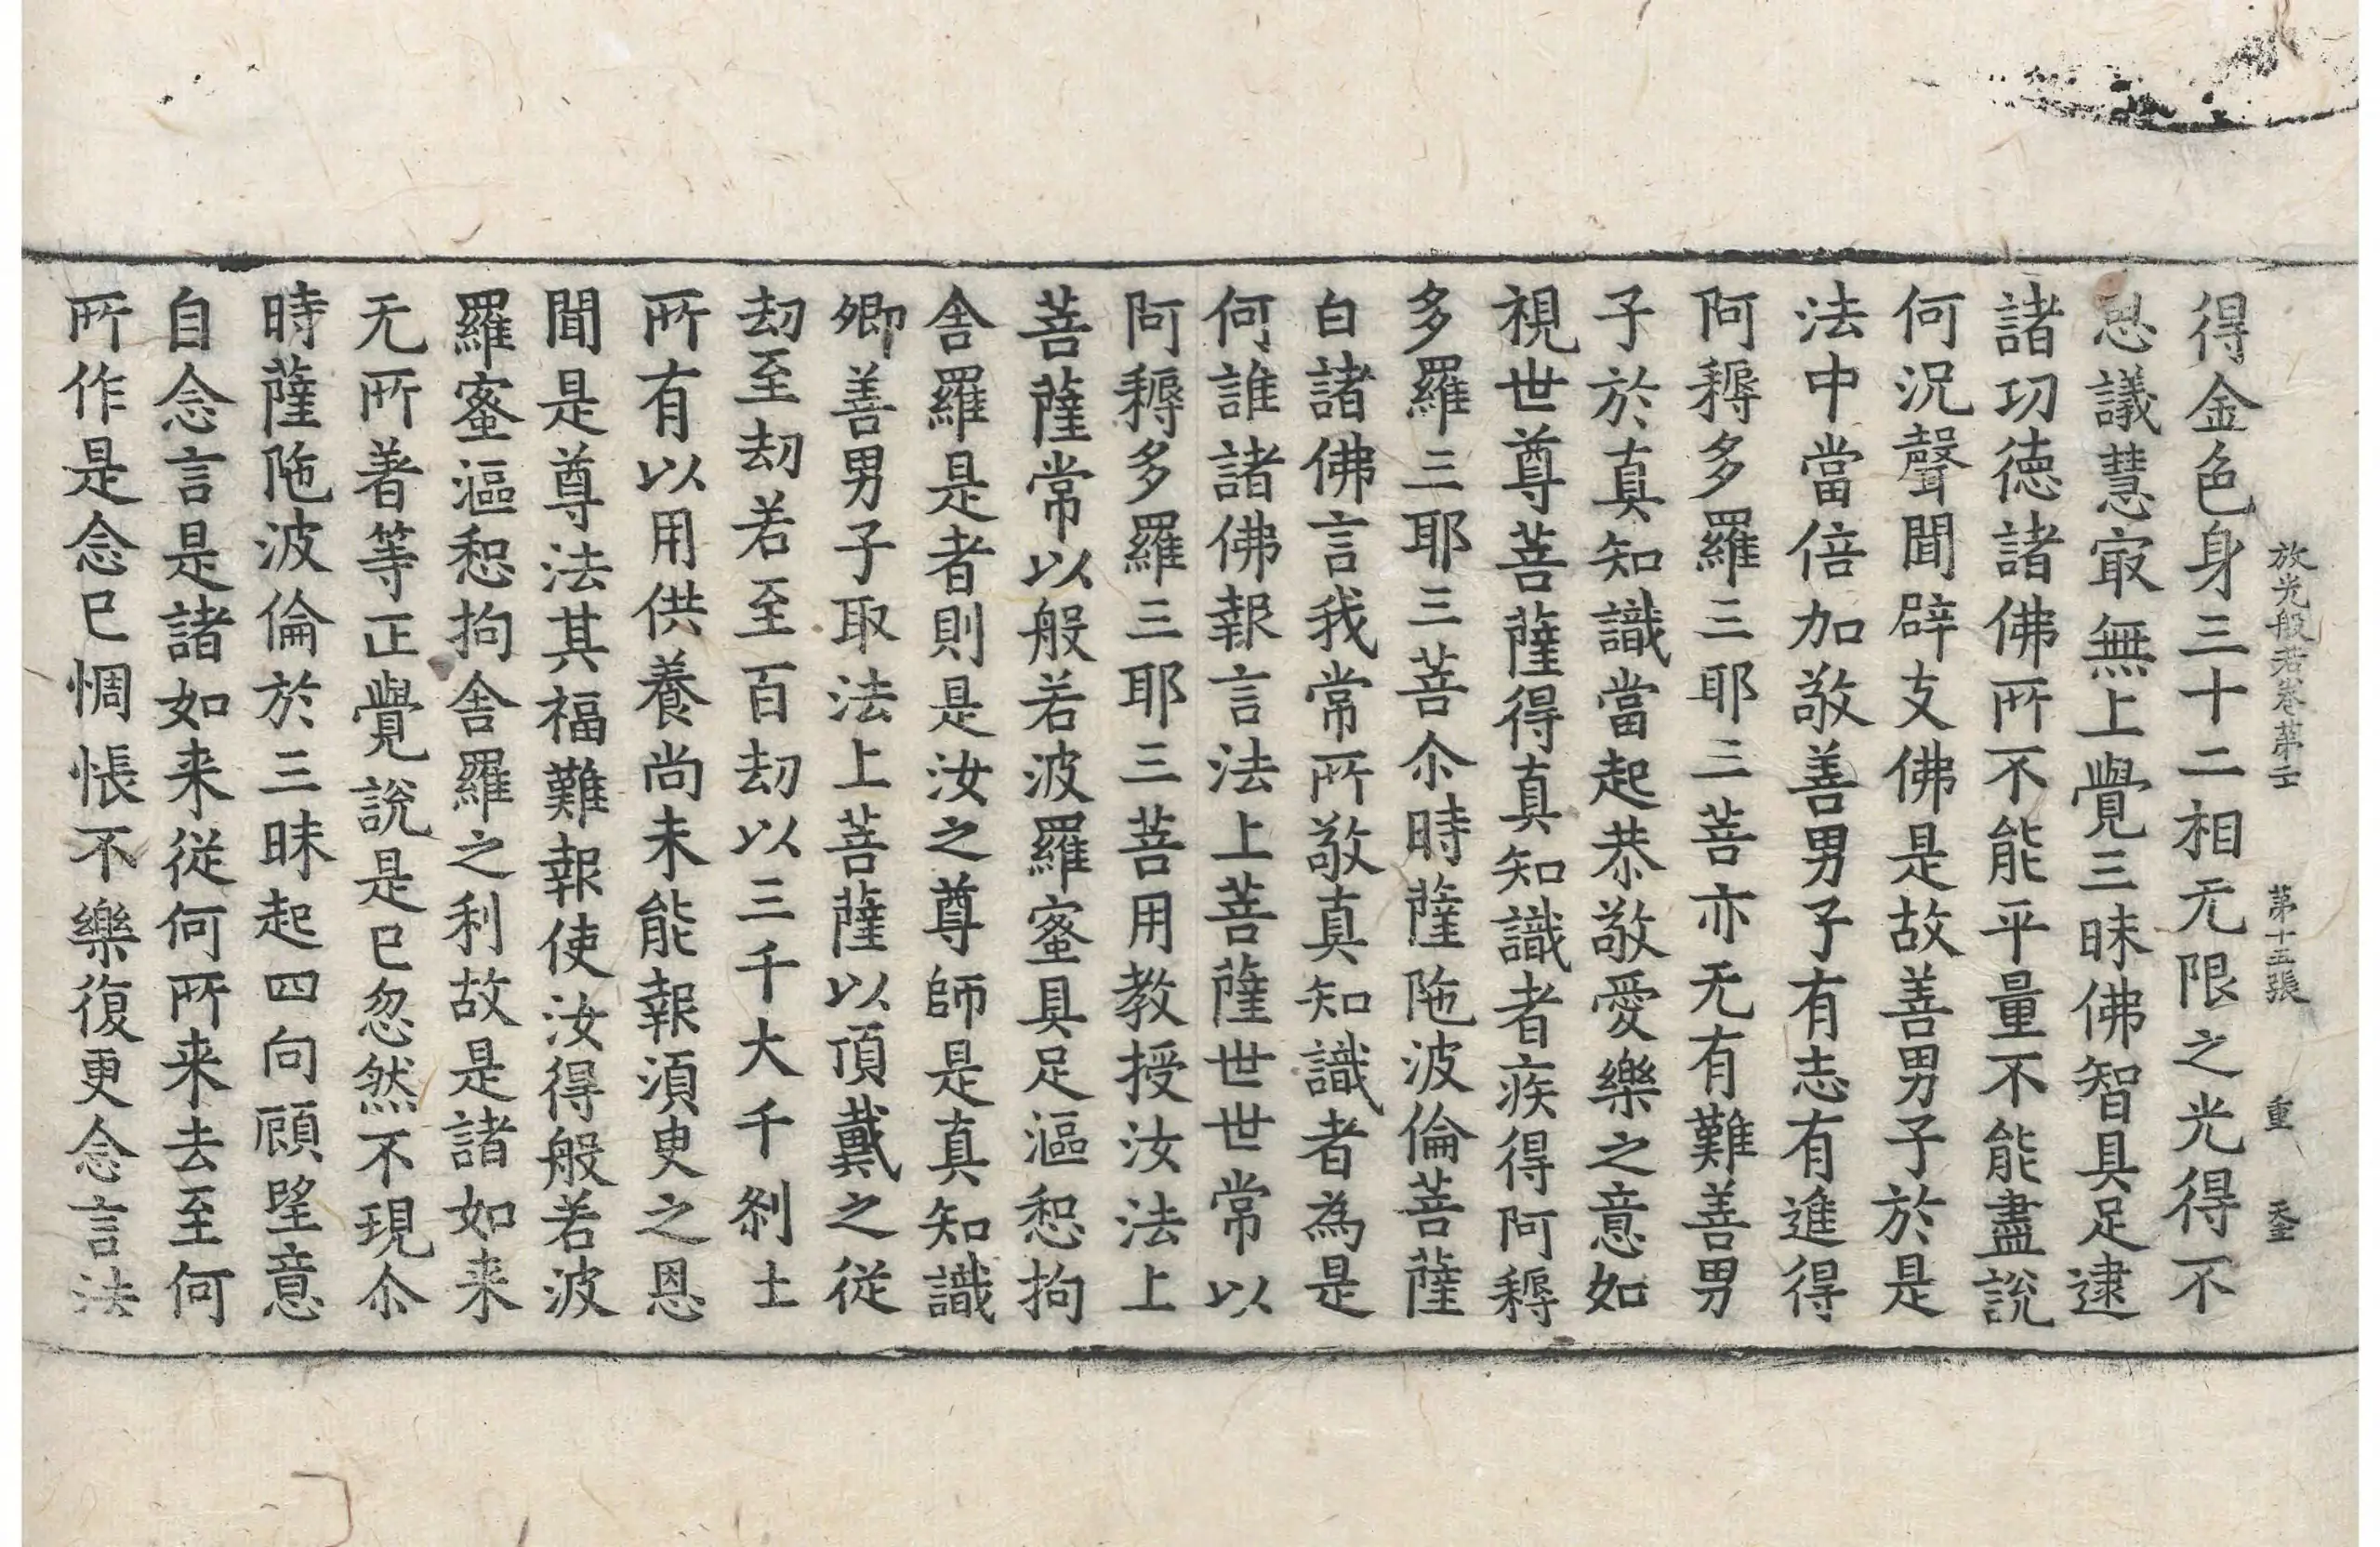 放光般若卷第二十 第十五張 重
得金色身三十二相无限之光得不
思議慧㝡無上覺三昧佛智具足逮
諸功德諸佛所不能平量不能盡說
何況聲聞辟支佛是故善男子於是
法中當倍加敬善男子有志有進得
阿耨多羅三耶三菩亦无有難善男
子於真知識當起恭敬愛樂之意如
視世尊菩薩得真知識者疾得阿耨
多羅三耶三菩尒時薩陁波倫菩薩
白諸佛言我常所敬真知識者為是
何誰諸佛報言法上菩薩世世常以
阿耨多羅三耶三菩用教授汝法上
菩薩常以般若波羅蜜具足漚惒拘
舍羅是者則是汝之尊師是真知識
卿善男子取法上菩薩以頂戴之從
劫至劫若至百劫以三千大千剎土
所有以用供養尚未能報須臾之恩
聞是尊法其福難報使汝得般若波
羅蜜漚惒拘舍羅之利故是諸如来
无所著等正覺說是已忽然不現尒
時薩陁波倫於三昧起四向顧望意
自念言是諸如来從何所来去至何
所作是念已惆悵不樂復更念言法